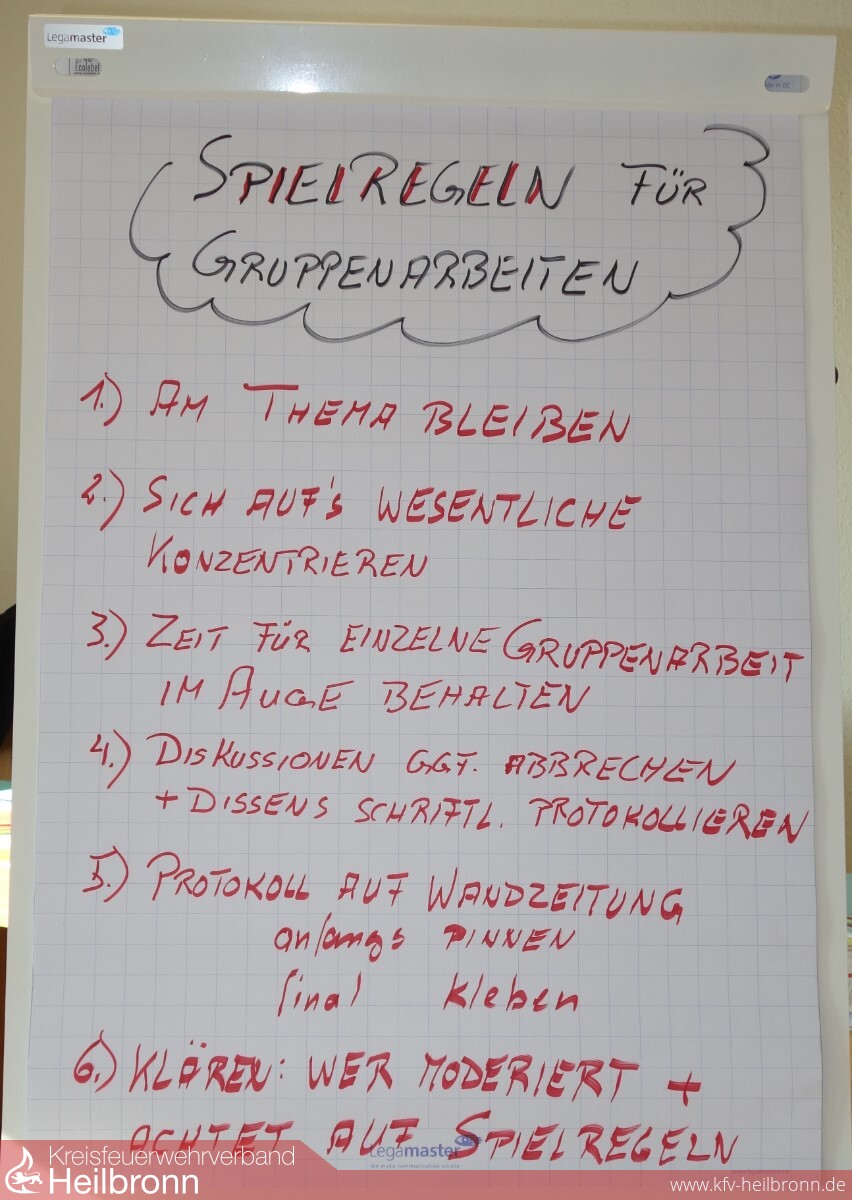 Legamaster
Ecolabel
SPIELREGELN FÜR
GRUPPENARBEITEN
1.) AM THEMA BLEIBEN
2.) SICH AUF'S WESENTLICHE
KONZENTRIEREN
3.) ZEIT FÜR EINZELNE GRUPPENARBEIT
IM AUGE BEHALTEN
4.) DISKUSSIONEN GGF. ABBRECHEN
+ DISSENS SCHRIFTL. PROTOKOLLIEREN
5.) PROTOKOLL AUF WANDZEITUNG
anfangs PINNEN
final kleben
6.) KLÄREN: WER MODERIERT +
ACHTET AUF SPIELREGELN
Legamaster
Kreisfeuerwehrverband
Heilbronn
www.kfv-heilbronn.de